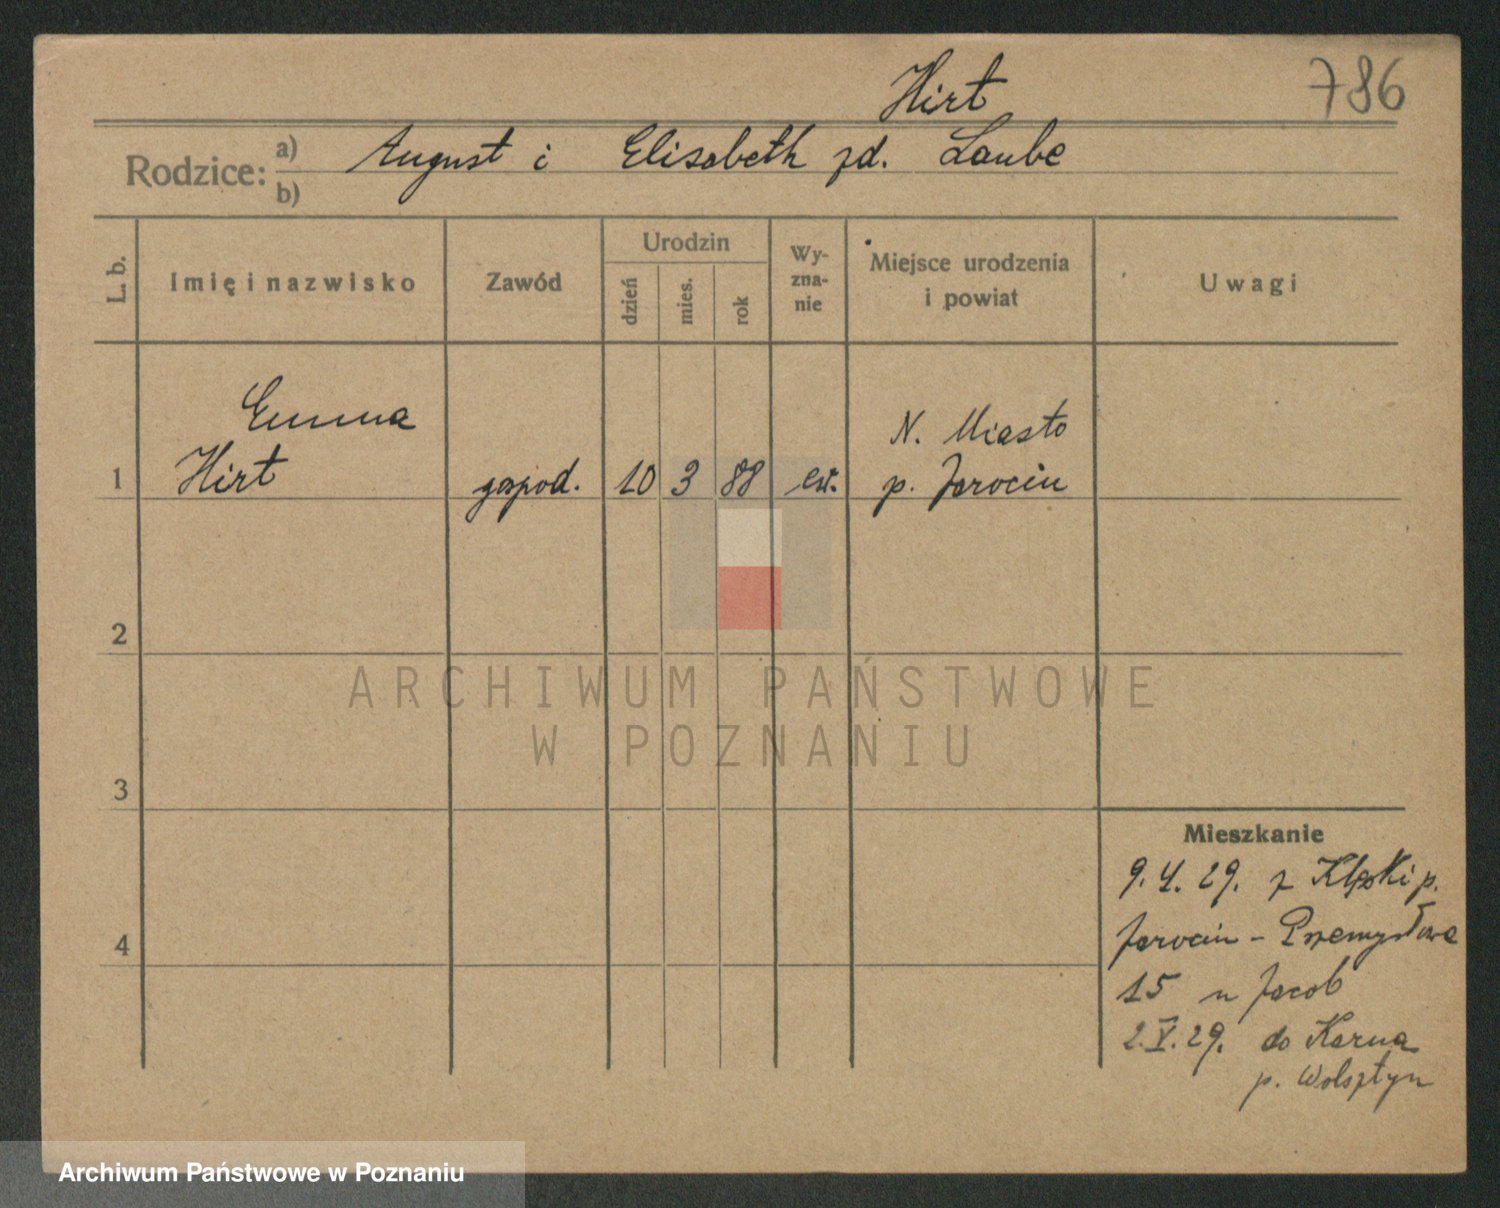 Hirt
786
Rodzice: a) August i Elisabeth zd. Laube
b)
L. b. Imię i nazwisko Zawód Urodzin dzień mies. rok Wy-zna-nie Miejsce urodzenia i powiat Uwagi
Emma
N. Miasto
1 Hirt gospod. 10 3 88 ew. p. Jarocin
2
ARCHIWUM PAŃSTWOWE
W POZNANIU
3
Mieszkanie
9.4.29. z Klęki p.
4
Jarocin - Przemysłowa
15 u Jacob
2.V.29. do Karna
p. Wolsztyn
Archiwum Państwowe w Poznaniu